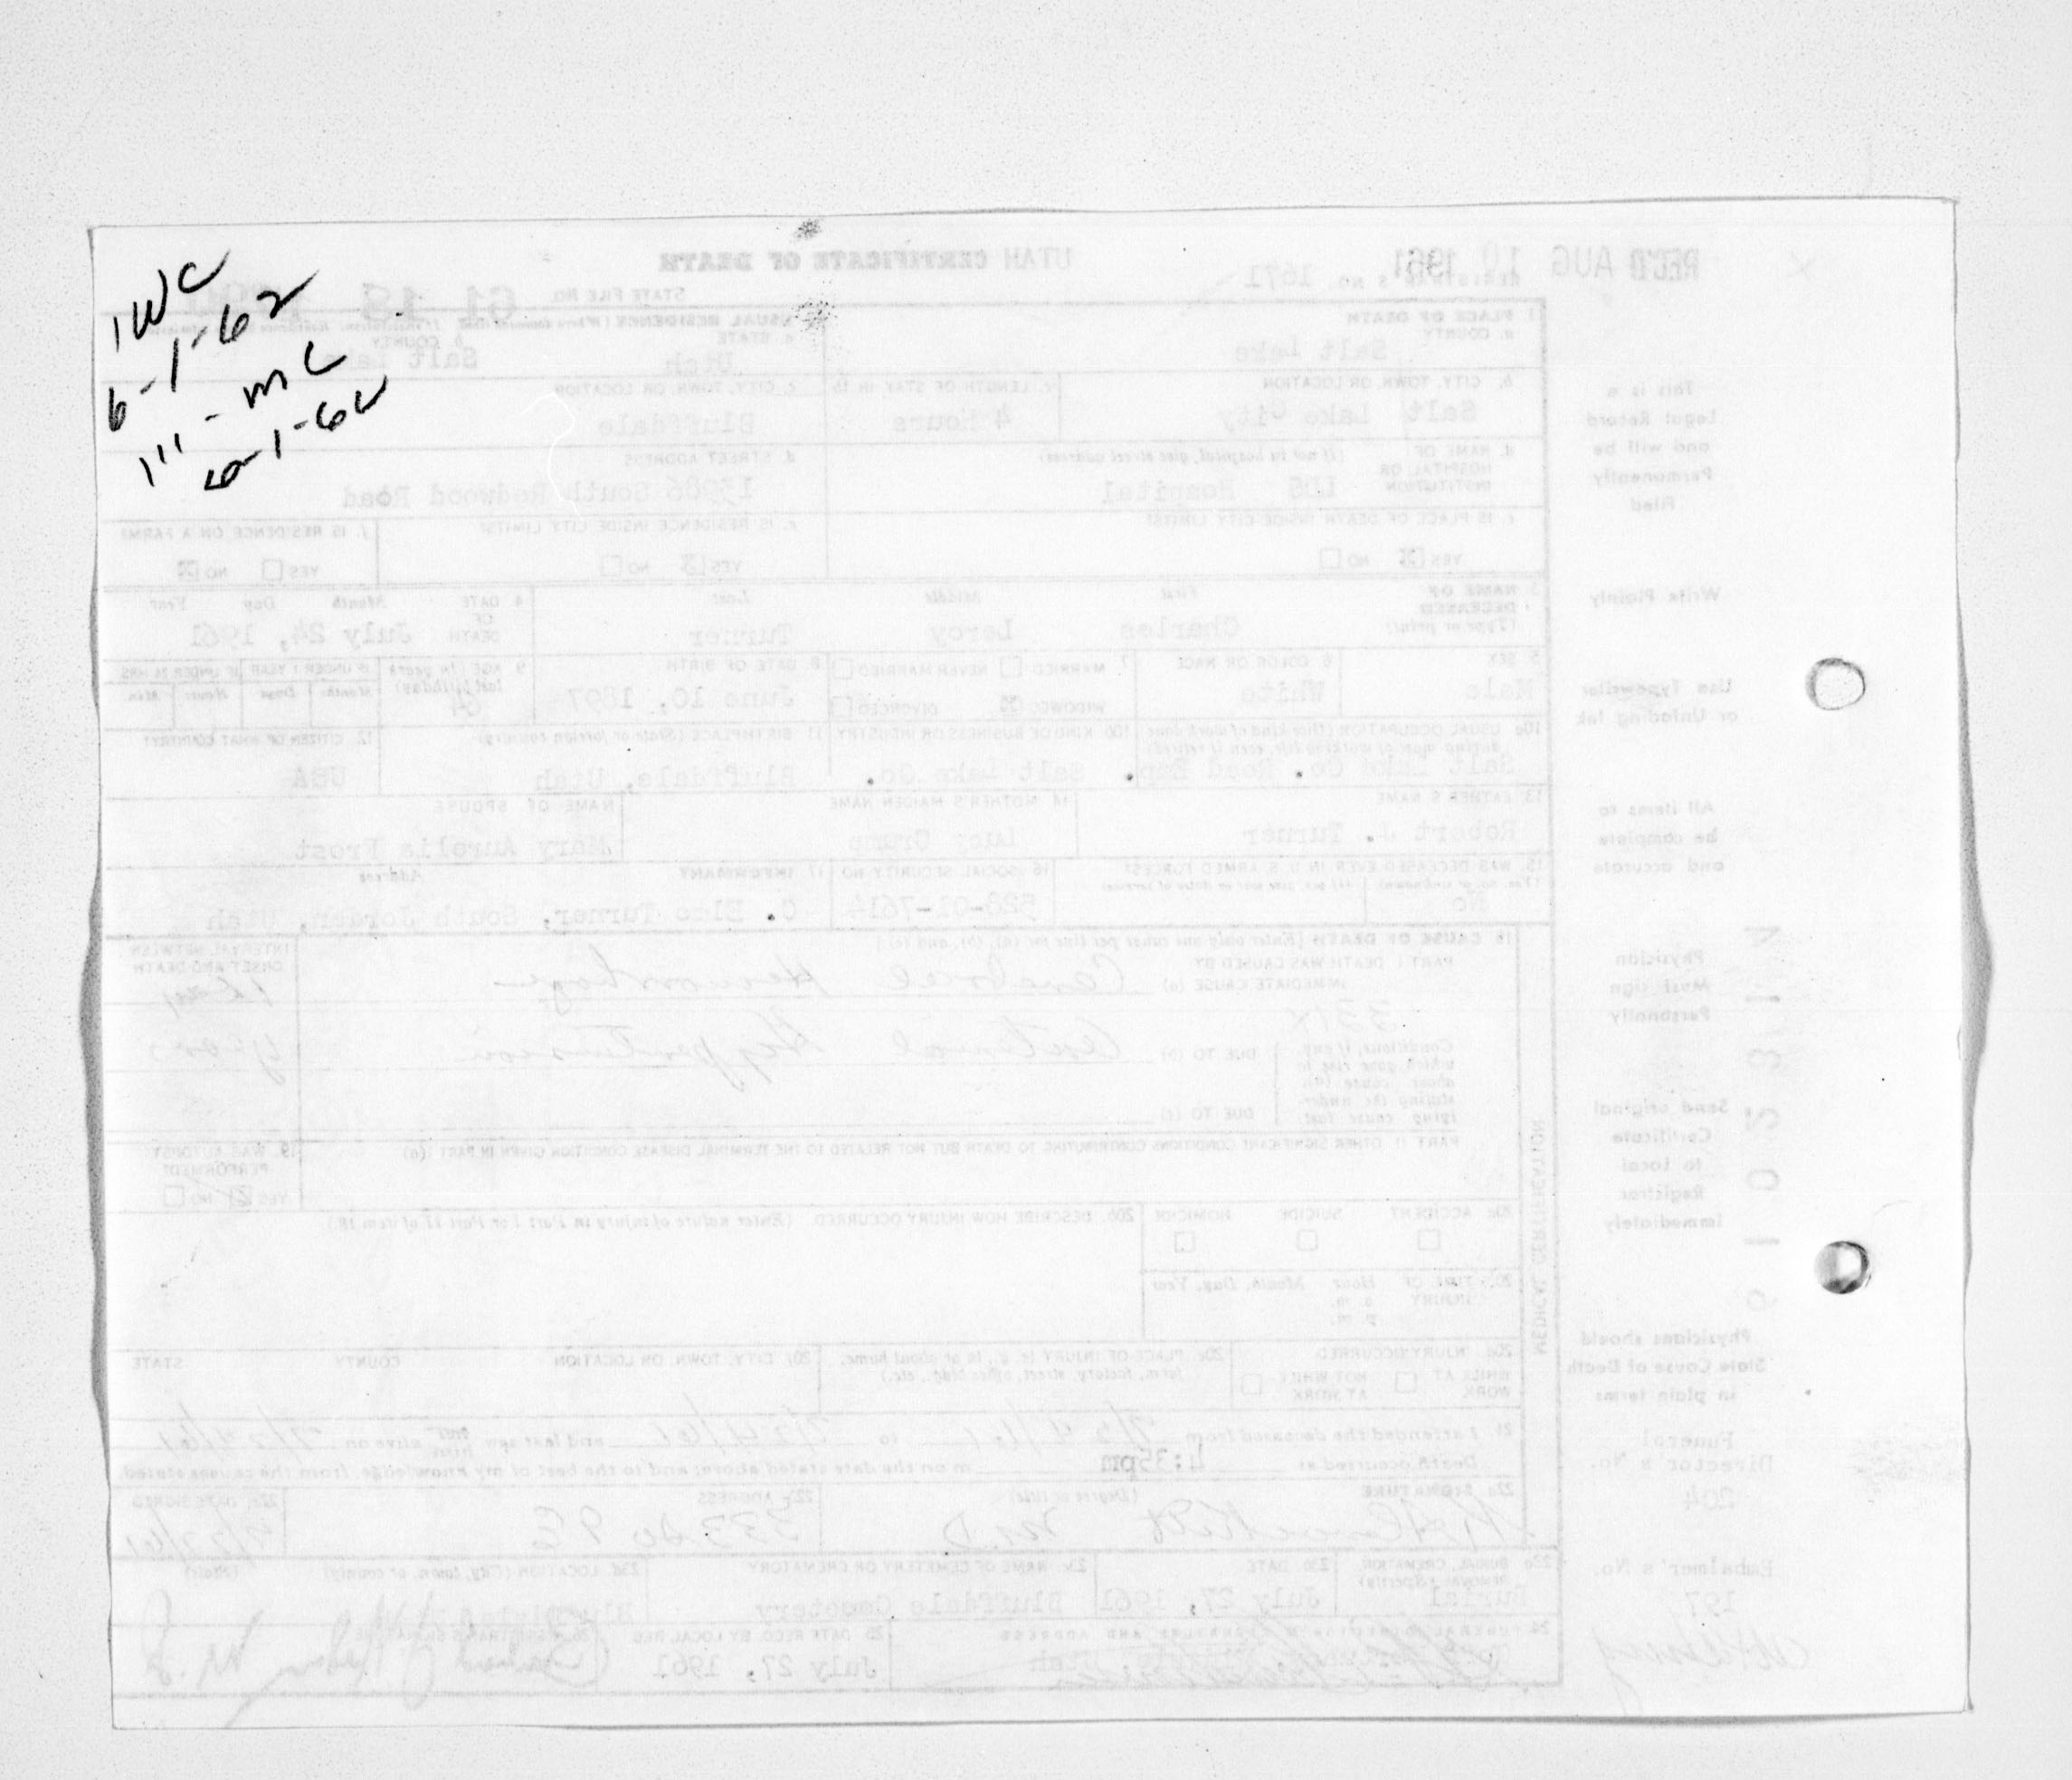 IWC
6-1-62
111 - mc
6-1-62
REC'D AUG 10 1961
UTAH CERTIFICATE OF DEATH
REGISTRAR'S NO. 1671
STATE FILE NO. 61 18
1. PLACE OF DEATH
a. COUNTY
Salt Lake
USUAL RESIDENCE
a. STATE
Utah
b. COUNTY
Salt Lake
b. CITY, TOWN, OR LOCATION
Salt Lake City
c. LENGTH OF STAY IN 1b
4 Hours
c. CITY, TOWN, OR LOCATION
Bluffdale
d. NAME OF HOSPITAL OR INSTITUTION
(If not in hospital, give street address)
LDS Hospital
d. STREET ADDRESS
13986 South Redwood Road
e. IS PLACE OF DEATH INSIDE CITY LIMITS?
YES NO
e. IS RESIDENCE INSIDE CITY LIMITS?
YES NO
f. IS RESIDENCE ON A FARM?
YES NO
3. NAME OF DECEASED
(Type or print)
First Middle Last
Charles Leroy Turner
4. DATE OF DEATH
Month Day Year
July 24, 1961
5. SEX
Male
6. COLOR OR RACE
White
7. MARRIED NEVER MARRIED
WIDOWED DIVORCED
8. DATE OF BIRTH
June 10, 1897
9. AGE (In years last birthday)
64
IF UNDER 1 YEAR IF UNDER 24 HRS.
Months Days Hours Min.
10a. USUAL OCCUPATION (Give kind of work done during most of working life, even if retired)
Salt Lake Co. Road Emp.
10b. KIND OF BUSINESS OR INDUSTRY
Salt Lake Co.
11. BIRTHPLACE (State or foreign country)
Bluffdale, Utah
12. CITIZEN OF WHAT COUNTRY?
USA
13. FATHER'S NAME
Robert J. Turner
14. MOTHER'S MAIDEN NAME
Lucy Crump
NAME OF SPOUSE
Mary Aurelia Frost
15. WAS DECEASED EVER IN U.S. ARMED FORCES?
(Yes, no, or unknown) (If yes, give war or dates of service)
No
16. SOCIAL SECURITY NO.
528-01-7614
17. INFORMANT Address
C. Elmo Turner, South Jordan, Utah
18. CAUSE OF DEATH [Enter only one cause per line for (a), (b), and (c).]
INTERVAL BETWEEN ONSET AND DEATH
PART I. DEATH WAS CAUSED BY:
IMMEDIATE CAUSE (a) Cerebral Hemorrhage
331X
Conditions, if any, which gave rise to above cause (a), stating the underlying cause last.
DUE TO (b) Arterial Hypertension
years
DUE TO (c)
PART II. OTHER SIGNIFICANT CONDITIONS CONTRIBUTING TO DEATH BUT NOT RELATED TO THE TERMINAL DISEASE CONDITION GIVEN IN PART I (a)
19. WAS AUTOPSY PERFORMED?
YES NO
20a. ACCIDENT SUICIDE HOMICIDE
20b. DESCRIBE HOW INJURY OCCURRED. (Enter nature of injury in Part I or Part II of item 18.)
20c. TIME OF INJURY
Hour Month, Day, Year
a. m.
p. m.
20d. INJURY OCCURRED
WHILE AT WORK NOT WHILE AT WORK
20e. PLACE OF INJURY (e. g., in or about home, farm, factory, street, office bldg., etc.)
20f. CITY, TOWN, OR LOCATION COUNTY STATE
21. I attended the deceased from 7/24/61 to 7/24/61 and last saw him alive on 7/24/61
Death occurred at 4:35pm m on the date stated above; and to the best of my knowledge, from the causes stated.
22a. SIGNATURE (Degree or title)
M.D.
22b. ADDRESS
333 So 9 E
22c. DATE SIGNED
23a. BURIAL, CREMATION, REMOVAL (Specify)
Burial
23b. DATE
July 27, 1961
23c. NAME OF CEMETERY OR CREMATORY
Bluffdale Cemetery
23d. LOCATION (City, town, or county) (State)
24. FUNERAL DIRECTOR'S SIGNATURE AND ADDRESS
Utah
25. DATE RECD. BY LOCAL REG.
July 27, 1961
26. REGISTRAR'S SIGNATURE
MEDICAL CERTIFICATION
This is a
Legal Record
and will be
Permanently
Filed
Write Plainly
Use Typewriter
or Unfading Ink
All items to
be complete
and accurate
Physician
Must sign
Personally
Send original
Certificate
to Local
Registrar
immediately
Physicians should
State Cause of Death
in plain terms
Funeral
Director's No.
204
Embalmer's No.
197